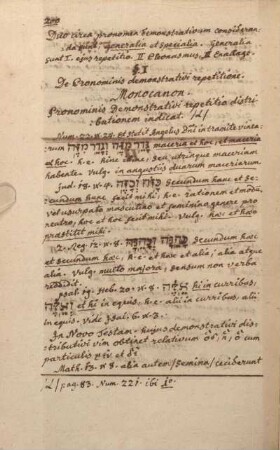 200
Duo circa pronomen demonstrativum consideran-
da sunt: Generalia et specialia. Generalia
sunt I. ejus repetitio. II Pleonasmus. III Enallage.
§ I
De Pronominis demonstrativi repetitione.
Monocanon.
Pronominis Demonstrativi repetitio distri-
butionem indicat. /d/
Num. 22. v. 24. et stetit angelus Dni in tramite vinea-
rum גדר מזה וגדר מזה maceria ex hoc, et maceria
ex hoc. h. e. hinc inde, seu utrinque maceriam
habente. Vulg. in angustiis duarum maceriarum.
Jud. 18. v. 4. כזה וכזה secundum hanc et se-
cundum hanc fecit mihi. h. e. rationem et modum,
vel usurpato masculino et feminino genere pro
neutro, hoc et hoc fecit mihi. Vulg. haec et haec
praestitit mihi.
2. Reg. 12. v. 8. secundum haec
et secundum haec, h. e. et haec et alia, alia atque
alia. Vulg. multo majora, sensum non verba
reddidit.
psal. 19. Heb. 20. v. 8. אלה hi in curribus,
אלה et hi in equis, h. e. alii in curribus, alii
in equis. vide Psal. v. 3.
In Novo Testam. hujus demonstrativi dis-
tributivi vim obtinet relativum ὅς, ἥ, ὅ cum
particulis μεν et δέ
Math. 13. v. 8. alia autem /semina/ ceciderunt
/d/ pag. 83. Num. 221. ibi 10.